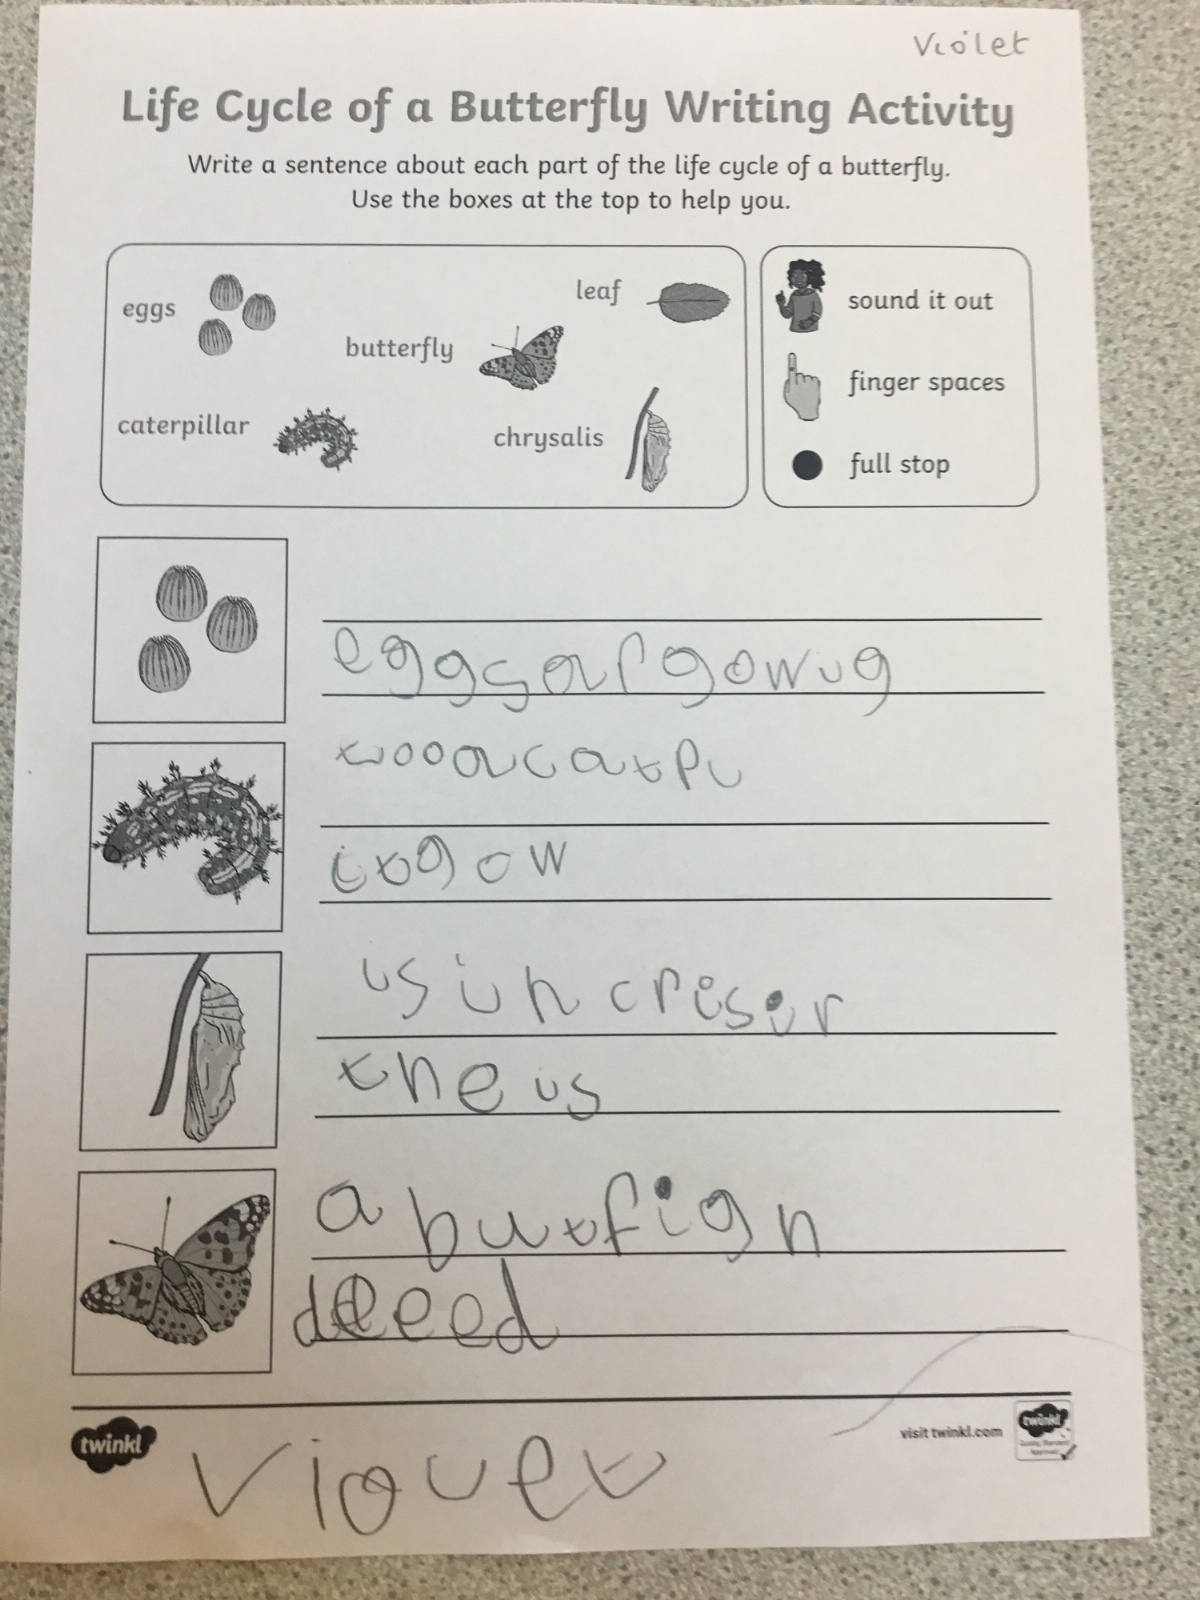 Violet
Life Cycle of a Butterfly Writing Activity
Write a sentence about each part of the life cycle of a butterfly.
Use the boxes at the top to help you.
eggs
leaf
butterfly
caterpillar
chrysalis
sound it out
finger spaces
full stop
eggs ar gowig
tooo a catpi
itgow
is in criser
the is
a butfign
deed
twinkl
visit twinkl.com
twinkl
Violet